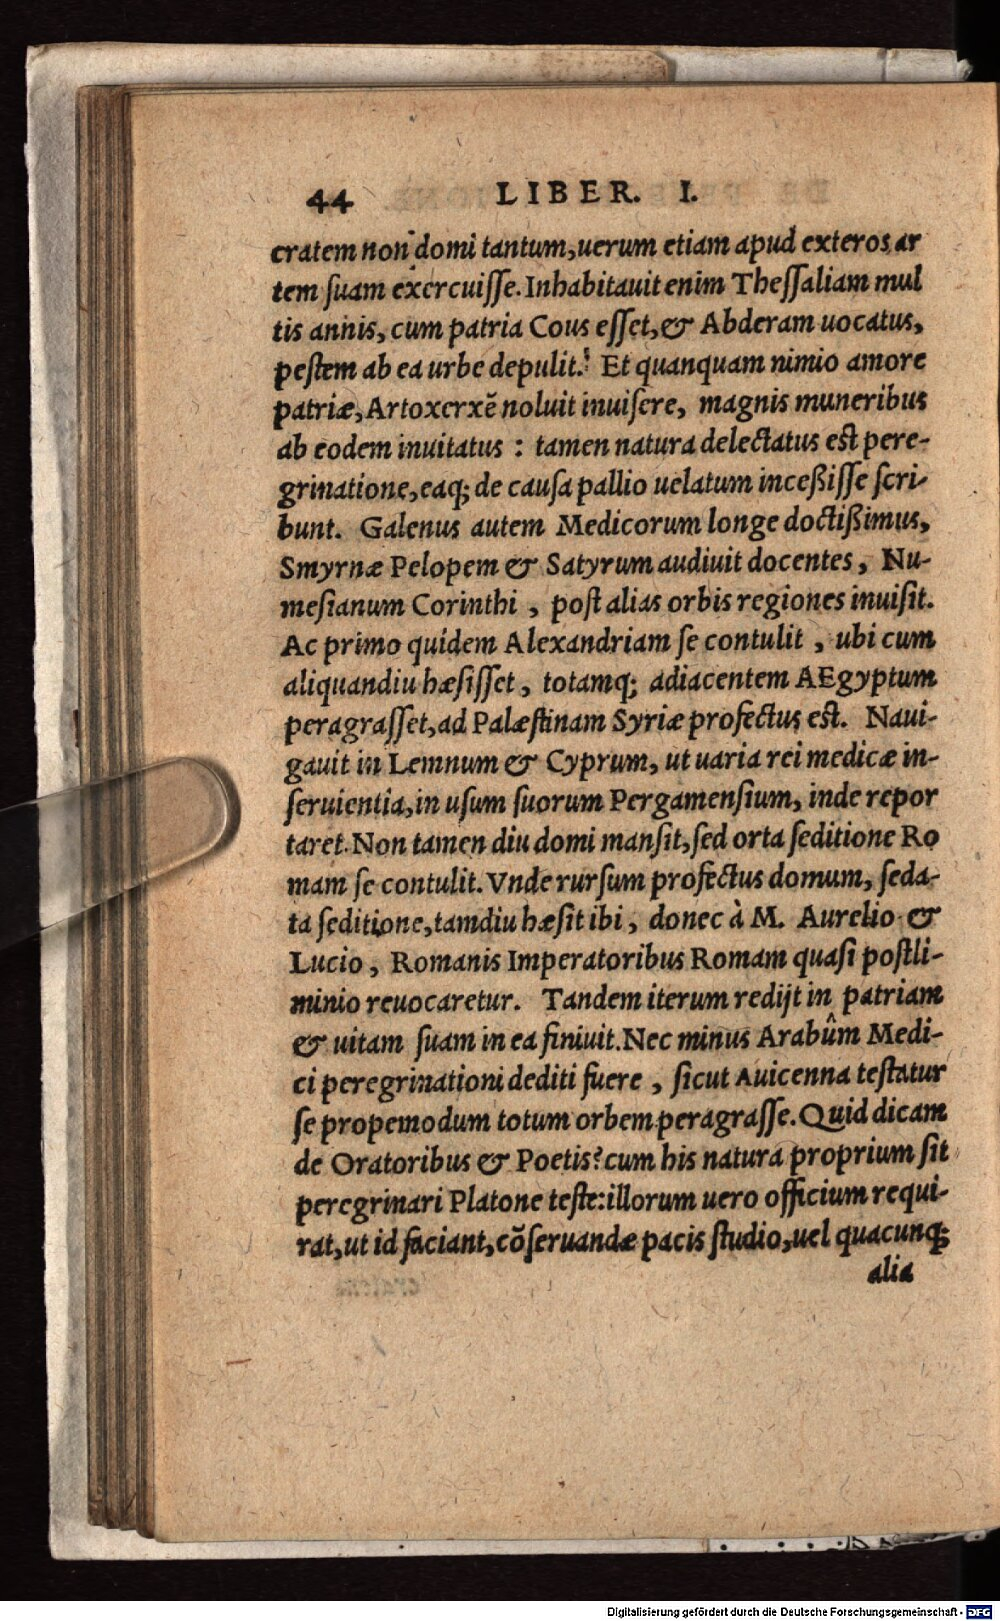 44 LIBER. I.
cratem non domi tantum, uerum etiam apud exteros ar
tem ſuam exercuiſſe. Inhabitauit enim Theſſaliam mul
tis annis, cum patria Cous eſſet, & Abderam uocatus,
peſtem ab ea urbe depulit. Et quanquam nimio amore
patriæ, Artoxerxē noluit inuiſere, magnis muneribus
ab eodem inuitatus : tamen natura delectatus est pere-
grinatione, eaq; de cauſa pallio uelatum inceßiſſe ſcri-
bunt. Galenus autem Medicorum longe doctißimus,
Smyrnæ Pelopem & Satyrum audiuit docentes, Nu-
meſianum Corinthi, poſt alias orbis regiones inuiſit.
Ac primo quidem Alexandriam ſe contulit, ubi cum
aliquandiu hæſiſſet, totamq; adiacentem AEgyptum
peragraſſet, ad Palæſtinam Syriæ profectus est. Naui-
gauit in Lemnum & Cyprum, ut uaria rei medicæ in-
ſeruientia, in uſum ſuorum Pergamenſium, inde repor
taret. Non tamen diu domi manſit, ſed orta ſeditione Ro
mam ſe contulit. Vnde rurſum profectus domum, ſeda-
ta ſeditione, tamdiu hæſit ibi, donec à M. Aurelio &
Lucio, Romanis Imperatoribus Romam quaſi poſtli-
minio reuocaretur. Tandem iterum redijt in patriam
& uitam ſuam in ea finiuit. Nec minus Arabûm Medi-
ci peregrinationi dediti fuere, ſicut Auicenna teſtatur
ſe propemodum totum orbem peragraſſe. Quid dicam
de Oratoribus & Poetis? cum his natura proprium ſit
peregrinari Platone teſte: illorum uero officium requi-
rat, ut id faciant, cōſeruandæ pacis ſtudio, uel quacunq;
alia
Digitalisierung gefördert durch die Deutsche Forschungsgemeinschaft - DFG